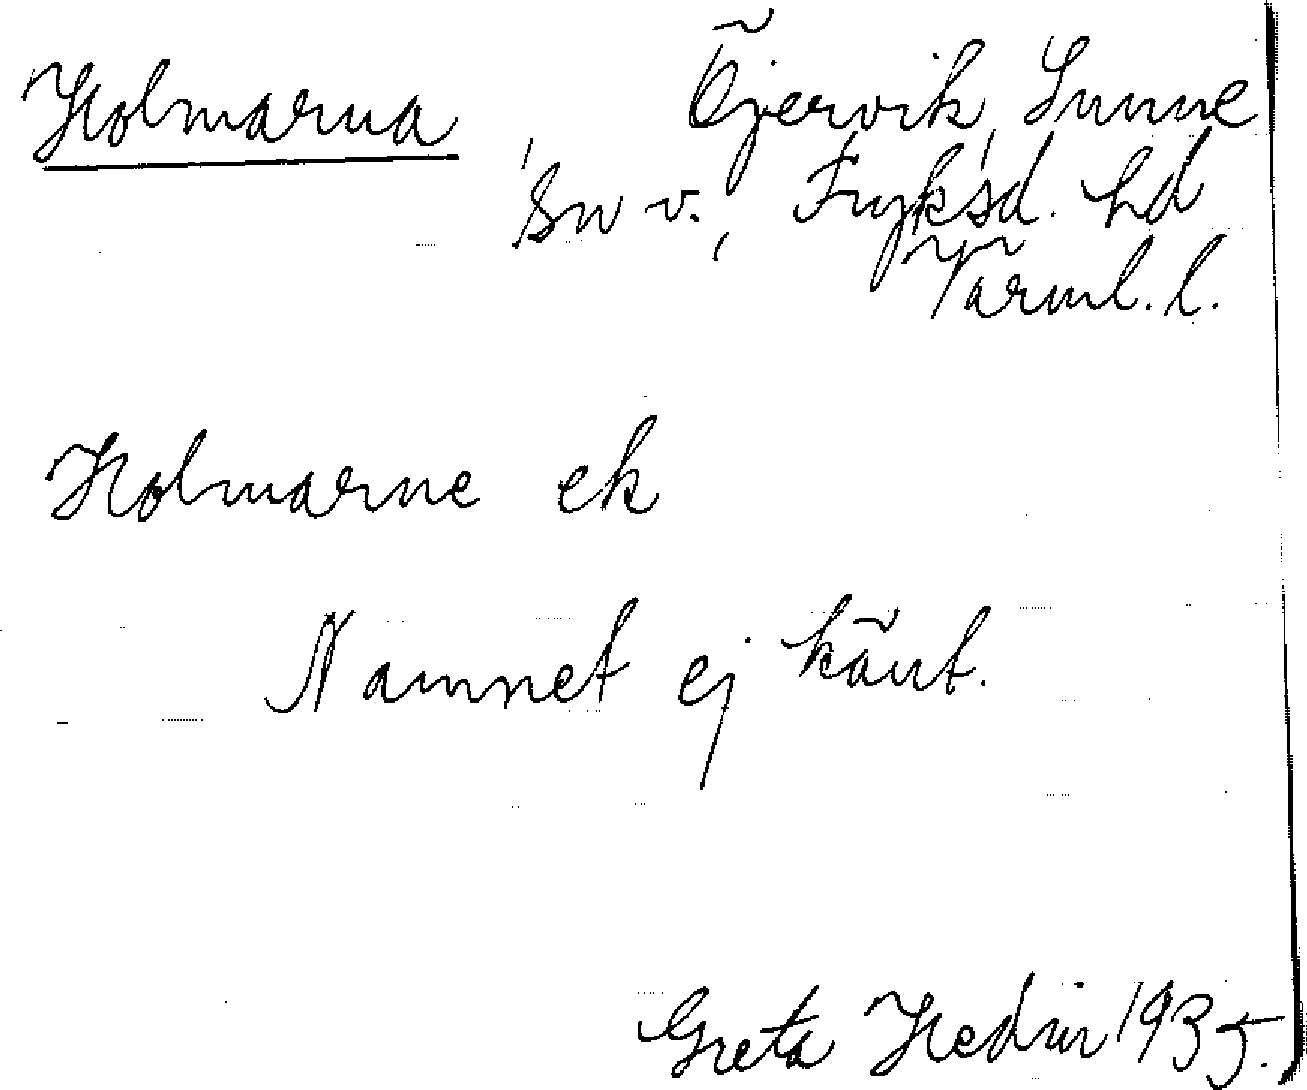 Holmarna Öjervik, Sunne
sn v., Fryksd. hd
Värml. l.
Holmarne ek
Namnet ej känt.
Greta Hedin 1935.